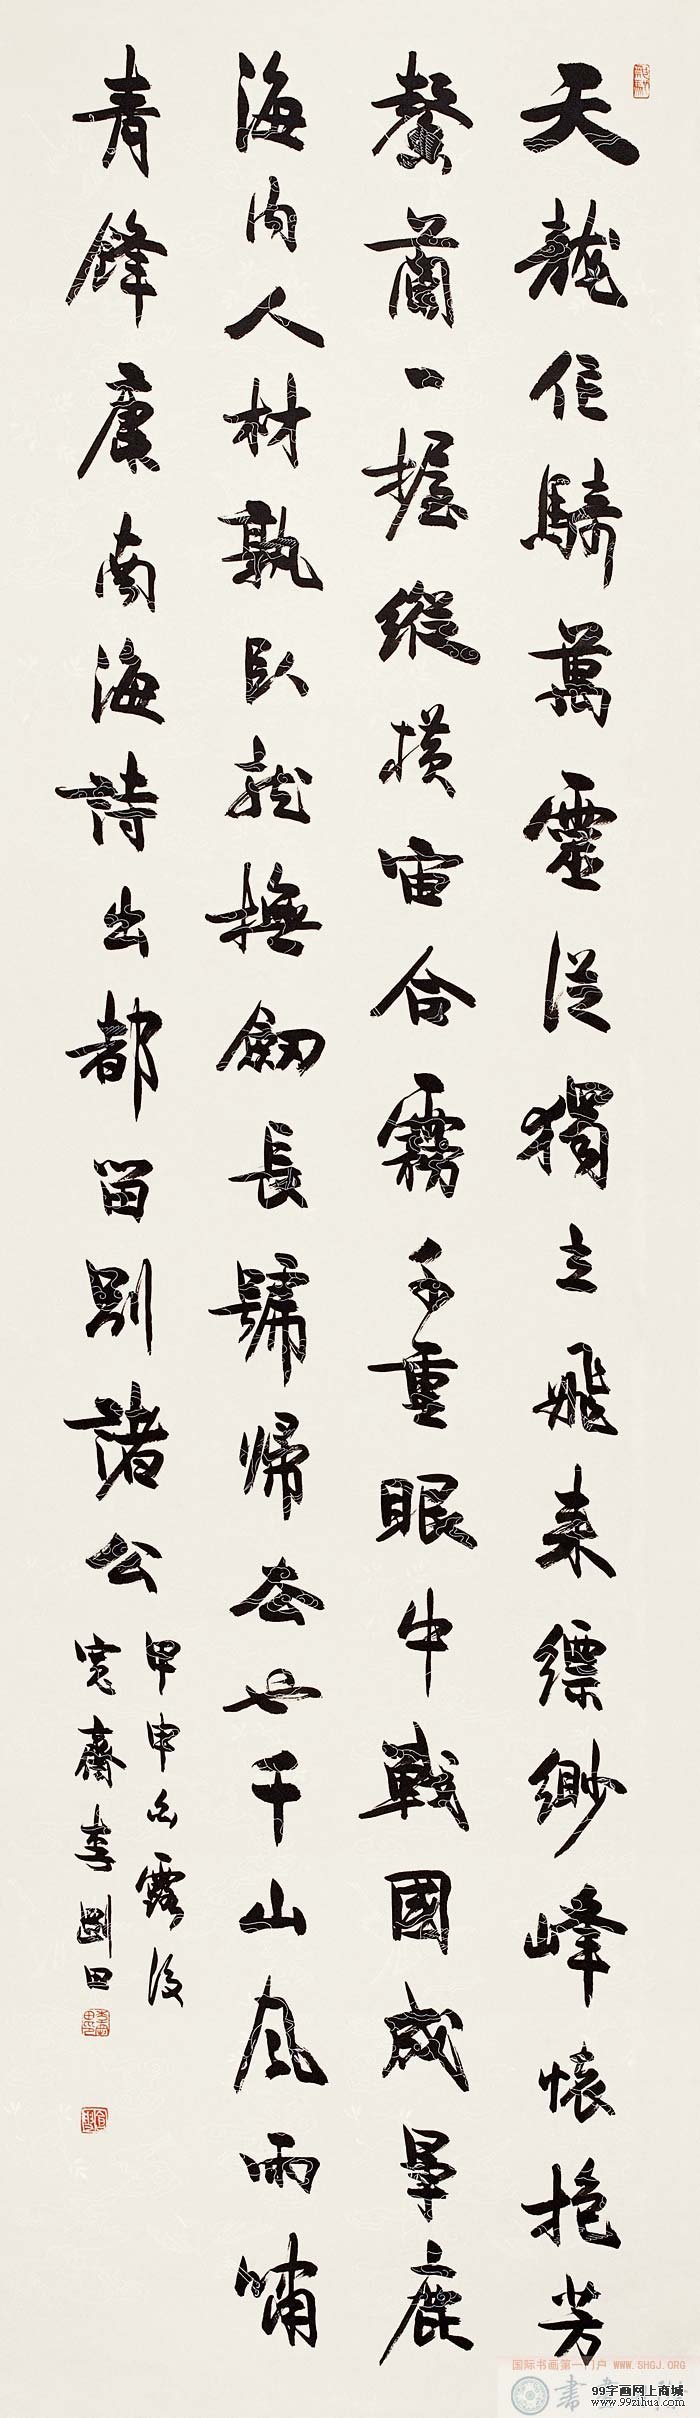 天龍作騎萬靈從獨立飛来縹緲峰懷抱芳
馨蘭一握縱橫宙合霧千重眼中戰國成爭鹿
海內人材孰臥龍撫劍長號歸去也千山風雨嘯
青鋒康南海詩出都留別諸公
甲申白露後
寬齋李剛田
国际书画第一门户 WWW.SHGJ.ORG
99字画网上商城
www.99zihua.com